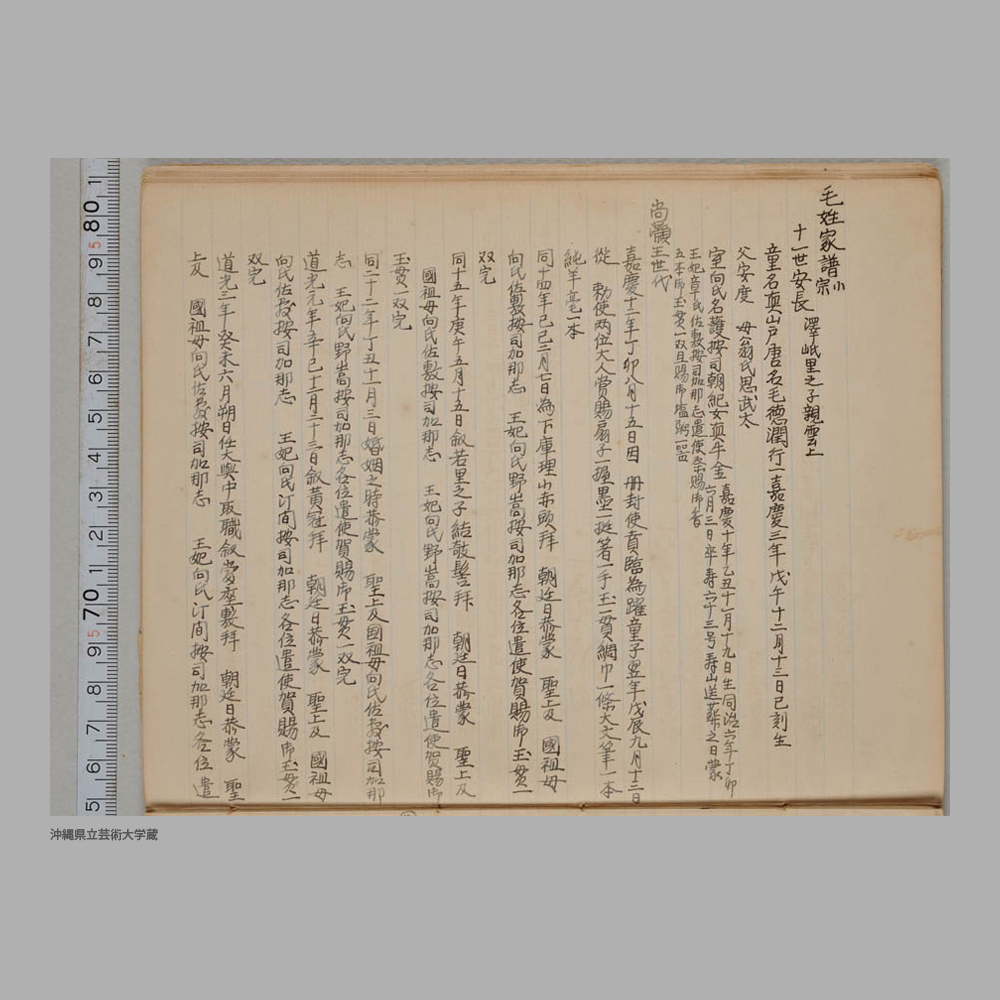 毛姓家譜 小宗
十一世安長 澤岻里之子親雲上
童名真山戸唐名毛德潤行一嘉慶三年戊午十二月十三日巳刻生
父安度 母翁氏思武太
室向氏名護按司朝紀女真牛金 嘉慶十年乙丑十一月十九日生同治六年丁卯
六月三日卒寿六十三号寿山送葬之日蒙
王妃章氏佐敷按司加那志遣使奈賜御香
五本御玉貫一双且賜御塩粥一器
尚灝王世代
嘉慶十二年丁卯八月十五日因 冊封使賁臨為躍童子翌年戊辰九月十三日
從 勅使両位大人賞賜扇子一握墨一挺箸一手玉一貫網巾一條大文筆一本
純羊毫一本
同十四年己巳二月七日為下庫理小赤頭拝 朝廷日恭蒙 聖上及 國祖母
向氏佐敷按司加那志 王妃向氏野嵩按司加那志各位遣使賀賜御玉貫一
双完
同十五年庚午五月十五日叙若里之子結敧髻拝 朝廷日恭蒙 聖上及
國祖母向氏佐敷按司加那志 王妃向氏野嵩按司加那志各位遣使賀賜御
玉貫一双完
同二十二年丁丑十一月三日婚姻之時恭蒙 聖上及國祖母向氏佐敷按司加那
志 王妃向氏野嵩按司加那志各位遣使賀賜御玉貫一双完
道光元年辛巳十二月二十三日叙黄冠拝 朝廷日恭蒙 聖上及 國祖母
向氏佐敷按司加那志 王妃向氏汀間按司加那志各位遣使賀賜御玉貫一
双完
道光三年癸未六月朔日任大與中取職叙當座敷拝 朝廷日恭蒙 聖
上及 國祖母向氏佐敷按司加那志 王妃向氏汀間按司加那志各位 遣
沖縄県立芸術大学蔵